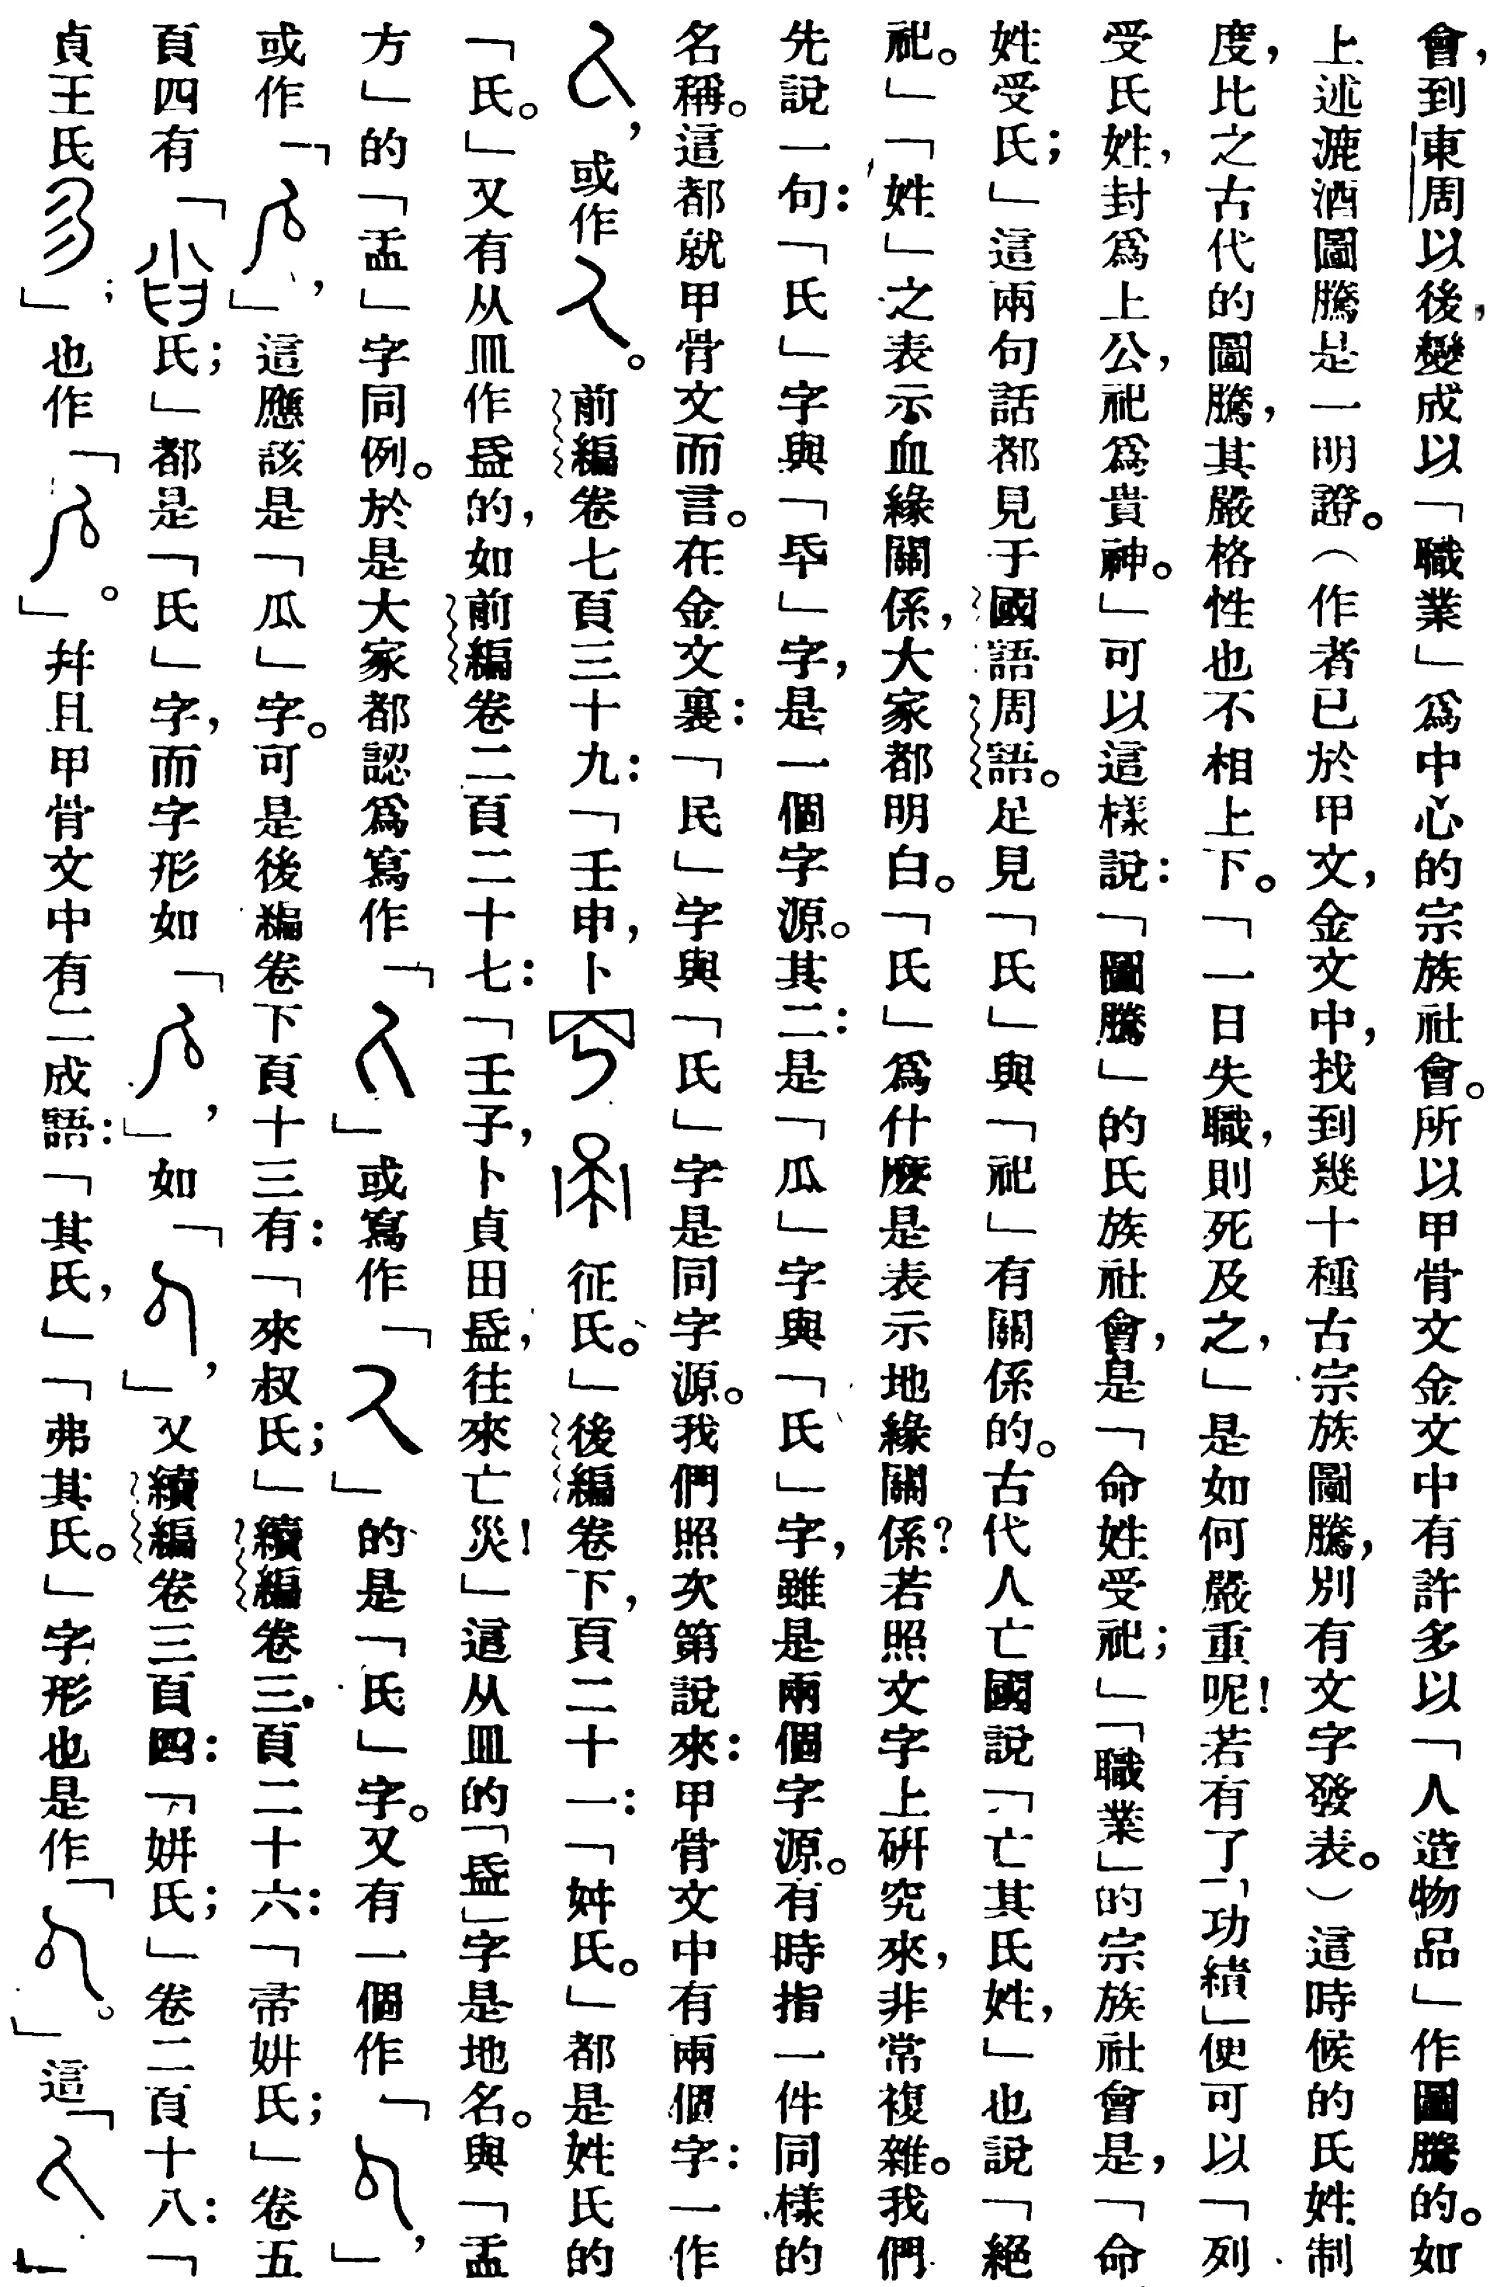 會,到東周以後,變成以「職業」爲中心的宗族社會。所以甲骨文金文中有許多以「人造物品」作圖騰的。如
上述漉酒圖騰是一明證。(作者已於甲文,金文中,找到幾十種古宗族圖騰,別有文字發表。)這時候的氏姓制
度,比之古代的圖騰,其嚴格性也不相上下。「一日失職,則死及之,」是如何嚴重呢!若有了「功績」便可以「列
受氏姓,封爲上公,祀爲貴神。」可以這樣說:「圖騰」的氏族社會,是「命姓受祀;」「職業」的宗族社會是,「命
姓受氏;」這兩句話都見于國語周語。足見「氏」與「祀」有關係的。古代人亡國說「亡其氏姓,」也說「絕
祀。」「姓」之表示血緣關係,大家都明白。「氏」爲什麽是表示地緣關係?若照文字上研究來,非常複雜。我們
先說一句:「氏」字與「氒」字,是一個字源。其二:是「瓜」字與「氏」字,雖是兩個字源。有時指一件同樣的
名稱。這都就甲骨文而言。在金文裏:「民」字與「氏」字是同字源。我們照次第說來:甲骨文中有兩個字:一作
,或作。前編卷七頁三十九:「壬申,卜征氏。」後編卷下,頁二十一:「姌氏。」都是姓氏的
「氏。」又有从皿作盁的,如前編卷二頁二十七:「壬子,卜貞田盁,往來亡災!」這从皿的「盁」字是地名。與「盂
方」的「盂」字同例。於是大家都認爲寫作「」或寫作「」的是「氏」字。又有一個作「」,
或作「」,這應該是「瓜」字。可是後編卷下頁十三有:「來叔氏;」續編卷三頁二十六:「帚姘氏;」卷五
頁四有「氏;」都是「氏」字,而字形如「」,如「」,又續編卷三頁四:「姘氏;」卷二頁十八:「
貞王氏」;也作「。」幷且甲骨文中有二成語:「其氏,」「弗其氏。」字形也是作「。」這「」